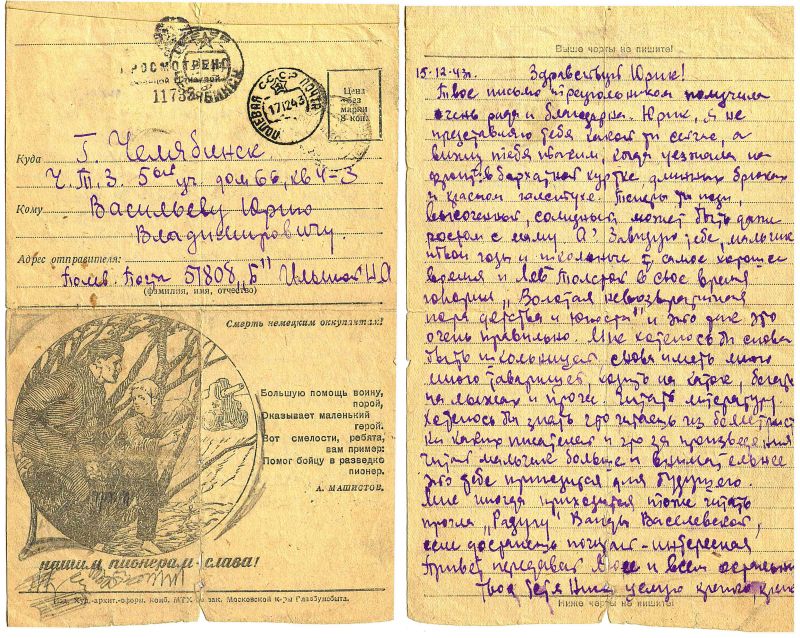 ПРОСМОТРЕНО
Военной Цензурой
11732
ЧЕЛЯБИНСК
ПОЛЕВАЯ ПОЧТА
СССР
17 12 43
Цена
без
марки
8 коп.
Куда Г. Челябинск
Ч.Т.З. 5ый уч. дом 66, кв 4-3
Кому Васильеву Юрию
Владимировичу.
Адрес отправителя:
Полев. Почта 51808 „Б"
(фамилия, имя, отчество)
Смерть немецким оккупантам!
Большую помощь воину,
порой,
Оказывает маленький
герой.
Вот смелости, ребята,
вам пример:
Помог бойцу в разведке
пионер.
А. МАШИСТОВ.
нашим пионерам слава!
Изд. Худ.-архит.-оформ. комб. МТХ по зак. Московской к-ры Главбумсбыта.
Выше черты не пишите!
15-12-43г. Здравствуй Юрик!
Твое письмо треугольником получила
очень рада и благодарна. Юрик, я не
представляю тебя каков ты сейчас, а
вижу тебя таким, когда уезжала на
фронт: в бархатной куртке, длинных брюках
и красном галстуке. Теперь ты
солидный может быть даже
ростом с маму А? Завидую тебе, мальчик
твои годы и школьные самое хорошее
время и Лев Толстой в свое время
говорил „Золотая невозвратимая
пора детства и юности" и это уже это
очень правильно. Мне хотелось бы снова
быть школьницей снова иметь много
много товарищей, ходить на каток, бегать
на лыжах и проч. Читать литературу.
Хотелось бы знать что читаешь из беллетристи
ки каких писателей и что за произведения
Читай мальчик больше и внимательнее
это тебе пригодится для будущего.
Мне иногда приходится тоже читать
прочла „Радугу" Ванды Василевской,
если достанешь почитай - интересная
Привет передавай Люсе и всем остальным
Твоя тетя Нина целую крепко, крепко
Ниже черты не пишите!